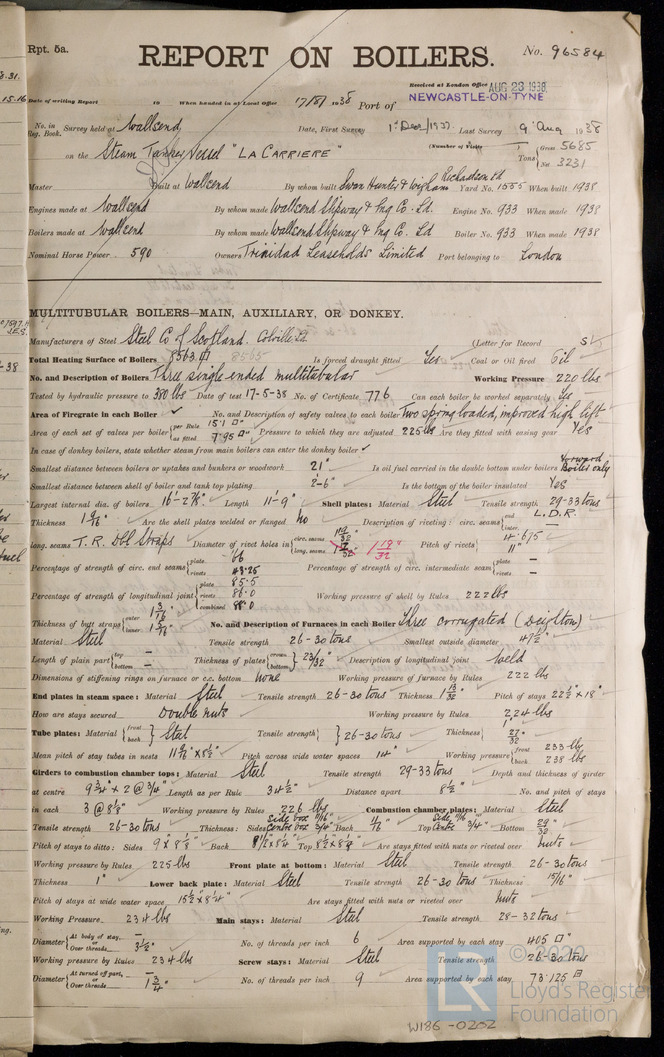 Rpt. 5a.
REPORT ON BOILERS.
No. 96584
Received at London Office AUG 23 1938
NEWCASTLE-ON-TYNE
Date of writing Report 19 When handed in at Local Office 17/8/1938 Port of
No. in Reg. Book. Survey held at Wallsend Date, First Survey 1st Dec/1937. Last Survey 9 Aug 1938
(Number of Visits
on the Steam Tanker Vessel "LA CARRIERE" Tons { Gross 5685 Net 3231
Master Built at Wallsend By whom built Swan Hunter & Wigham Richardson Ld Yard No. 1555 When built 1938
Engines made at Wallsend By whom made Wallsend Slipway & Eng Co. Ld. Engine No. 933 When made 1938
Boilers made at Wallsend By whom made Wallsend Slipway & Eng Co. Ld Boiler No. 933 When made 1938
Nominal Horse Power 590 Owners Trinidad Leaseholds Limited Port belonging to London
MULTITUBULAR BOILERS—MAIN, AUXILIARY, OR DONKEY.
Manufacturers of Steel Steel Co of Scotland. Colvilles Ld. (Letter for Record S
Total Heating Surface of Boilers 8563 8565 Is forced draught fitted Yes Coal or Oil fired Oil
No. and Description of Boilers Three single ended multitubular Working Pressure 220 lbs
Tested by hydraulic pressure to 380 lbs Date of test 17-5-38 No. of Certificate 776 Can each boiler be worked separately Yes
Area of Firegrate in each Boiler No. and Description of safety valves to each boiler Two spring loaded, improved high lift
Area of each set of valves per boiler { per Rule 15.1 □" as fitted 7.95 □" Pressure to which they are adjusted 225 lbs Are they fitted with easing gear Yes
In case of donkey boilers, state whether steam from main boilers can enter the donkey boiler
Smallest distance between boilers or uptakes and bunkers or woodwork 21" Is oil fuel carried in the double bottom under boilers Forward Boiler only
Smallest distance between shell of boiler and tank top plating 2'-6" Is the bottom of the boiler insulated Yes
Largest internal dia. of boilers 16'-2⅞" Length 11'-9" Shell plates: Material Steel Tensile strength 29-33 tons
Thickness 1 9/16" Are the shell plates welded or flanged No Description of riveting: circ. seams { end L.D.R. inter. —
long. seams T.R. Dbl Straps Diameter of rivet holes in { circ. seams long. seams 1 19/32 Pitch of rivets { 4.615 11"
Percentage of strength of circ. end seams { plate 66 rivets 43.25 Percentage of strength of circ. intermediate seam { plate — rivets —
Percentage of strength of longitudinal joint { plate 85.5 rivets 86.0 combined 88.0 Working pressure of shell by Rules 222 lbs
Thickness of butt straps { outer 1 3/16 inner 1 5/16" No. and Description of Furnaces in each Boiler Three corrugated (Deighton)
Material Steel Tensile strength 26-30 tons Smallest outside diameter 49½"
Length of plain part { top — bottom — Thickness of plates { crown bottom } 23/32" Description of longitudinal joint Weld
Dimensions of stiffening rings on furnace or c.c. bottom None Working pressure of furnace by Rules 222 lbs
End plates in steam space: Material Steel Tensile strength 26-30 tons Thickness 1 13/32" Pitch of stays 22½" × 18"
How are stays secured Double nuts Working pressure by Rules 224 lbs
Tube plates: Material { front back } Steel Tensile strength } 26-30 tons Thickness { 1" 27/32
Mean pitch of stay tubes in nests 11 5/16" × 8½" Pitch across wide water spaces 14" Working pressure { front 233 lbs back 238 lbs
Girders to combustion chamber tops: Material Steel Tensile strength 29-33 tons Depth and thickness of girder
at centre 9¾" × 2 @ ¾" Length as per Rule 34½" Distance apart 8½" No. and pitch of stays
in each 3 @ 8⅛" Working pressure by Rules 226 lbs Combustion chamber plates: Material Steel
Tensile strength 26-30 tons Thickness: Sides Side box 11/16" Centre box ¾" Back 11/16 Top Side 11/16 Centre ¾" Bottom 29/32"
Pitch of stays to ditto: Sides 9" × 8⅛" Back 8½ × 8¼" Top 8½" × 8⅛" Are stays fitted with nuts or riveted over Nuts
Working pressure by Rules 225 lbs Front plate at bottom: Material Steel Tensile strength 26-30 tons
Thickness 1" Lower back plate: Material Steel Tensile strength 26-30 tons Thickness 15/16"
Pitch of stays at wide water space 15½" × 8¼" Are stays fitted with nuts or riveted over Nuts
Working Pressure 234 lbs Main stays: Material Steel Tensile strength 28-32 tons
Diameter { At body of stay, — or Over threads 3½" No. of threads per inch 6 Area supported by each stay 405 □"
Working pressure by Rules 234 lbs Screw stays: Material Steel Tensile strength 26-30 tons
Diameter { At turned off part, — or Over threads 1¾ No. of threads per inch 9 Area supported by each stay 73.125 □"
© 2020
Lloyd's Register
Foundation
W186-0202